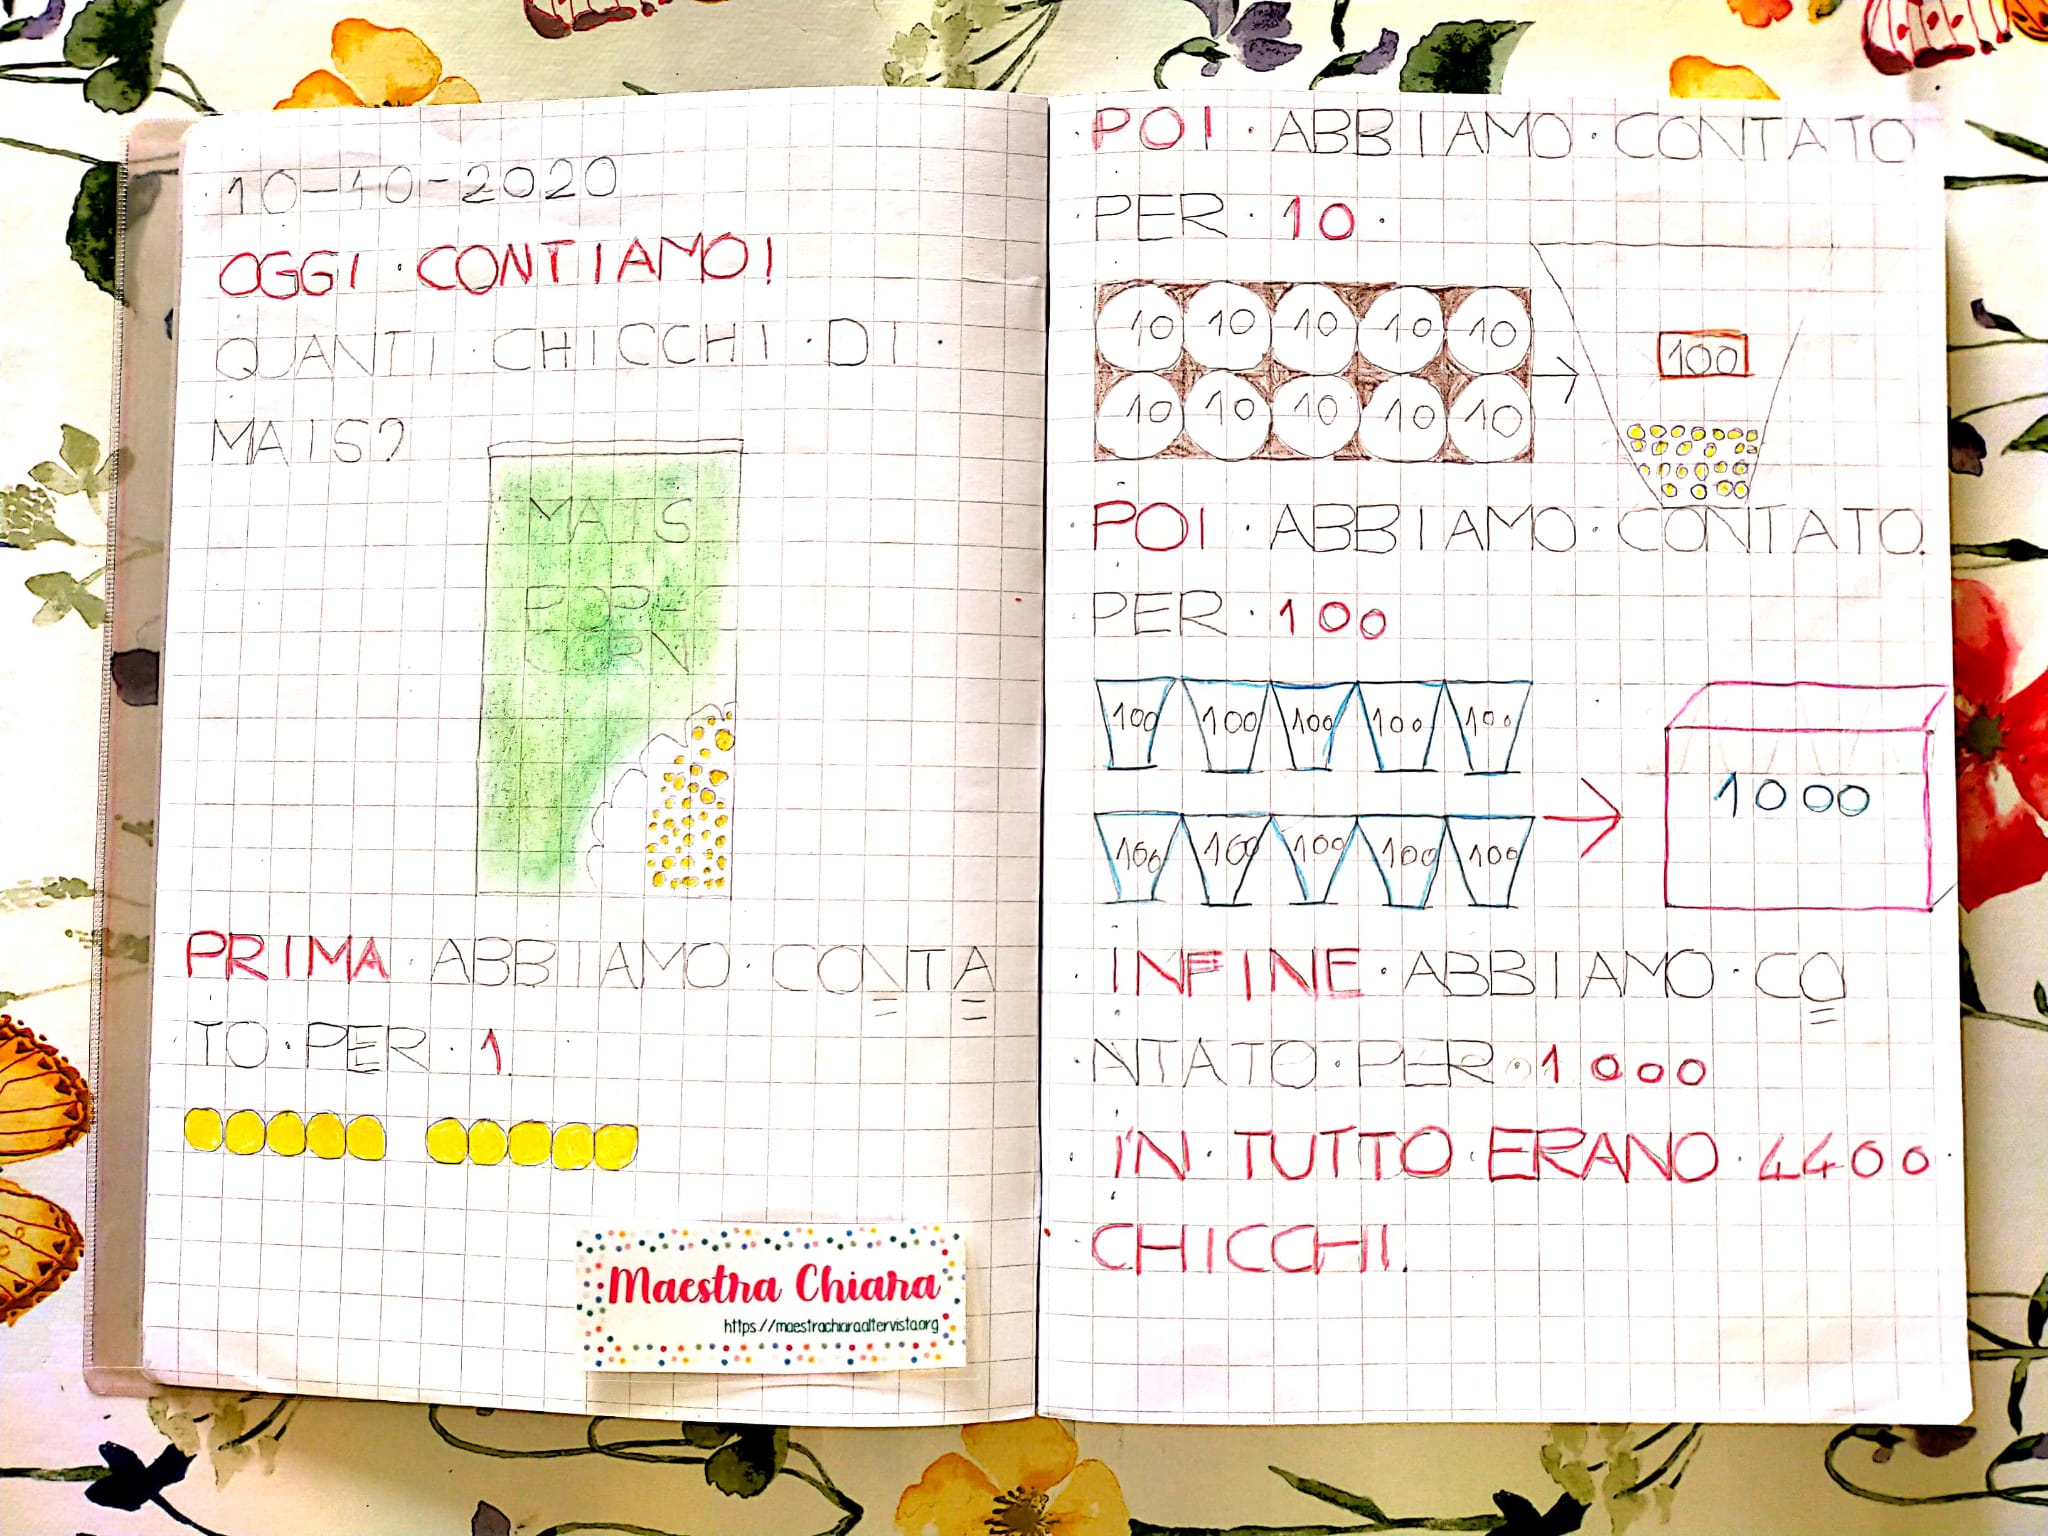 10-10-2020
OGGI CONTIAMO!
QUANTI CHICCHI DI
MAIS?
MAIS
POP-
CORN
PRIMA ABBIAMO CONTA
TO PER 1.
Maestra Chiara
https://maestrachiara.altervista.org
POI ABBIAMO CONTATO
PER 10.
10 10 10 10 10
10 10 10 10 10
100
POI ABBIAMO CONTATO
PER 100
100 100 100 100 100
100 100 100 100 100
1000
INFINE ABBIAMO CO
NTATO PER 1000
IN TUTTO ERANO 4400
CHICCHI.